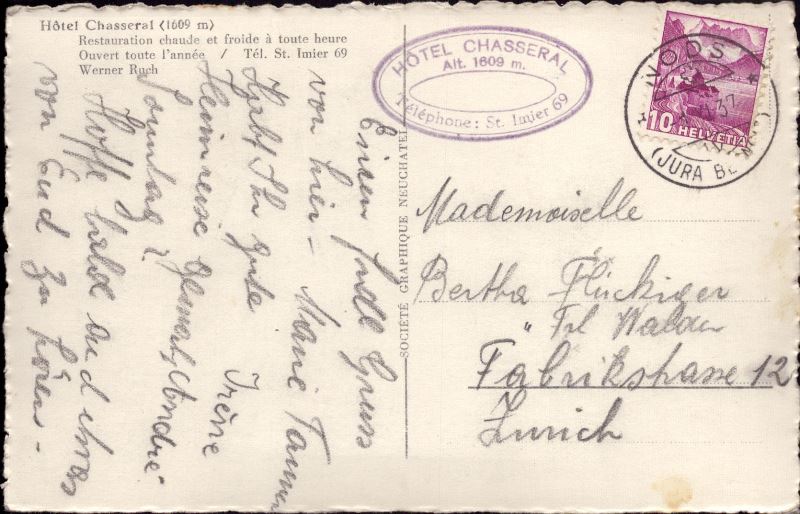 Hôtel Chasseral (1609 m)
Restauration chaude et froide à toute heure
Ouvert toute l'année / Tél. St. Imier 69
Werner Ruch
HÔTEL CHASSERAL
Alt. 1609 m.
Téléphone: St. Imier 69
NODS
37
(JURA BE
10 HELVETIA
SOCIÉTÉ GRAPHIQUE NEUCHATEL
Einen Gruss
von hier - Tanner
Habt Ihr gute Irène
Heimreise gemacht André
Sonntag?
Hoffe bald auch etwas
von Euch zu hören -
Mademoiselle
Bertha Flückiger
Frl Walder
Fabrikstrasse 12
Zurich